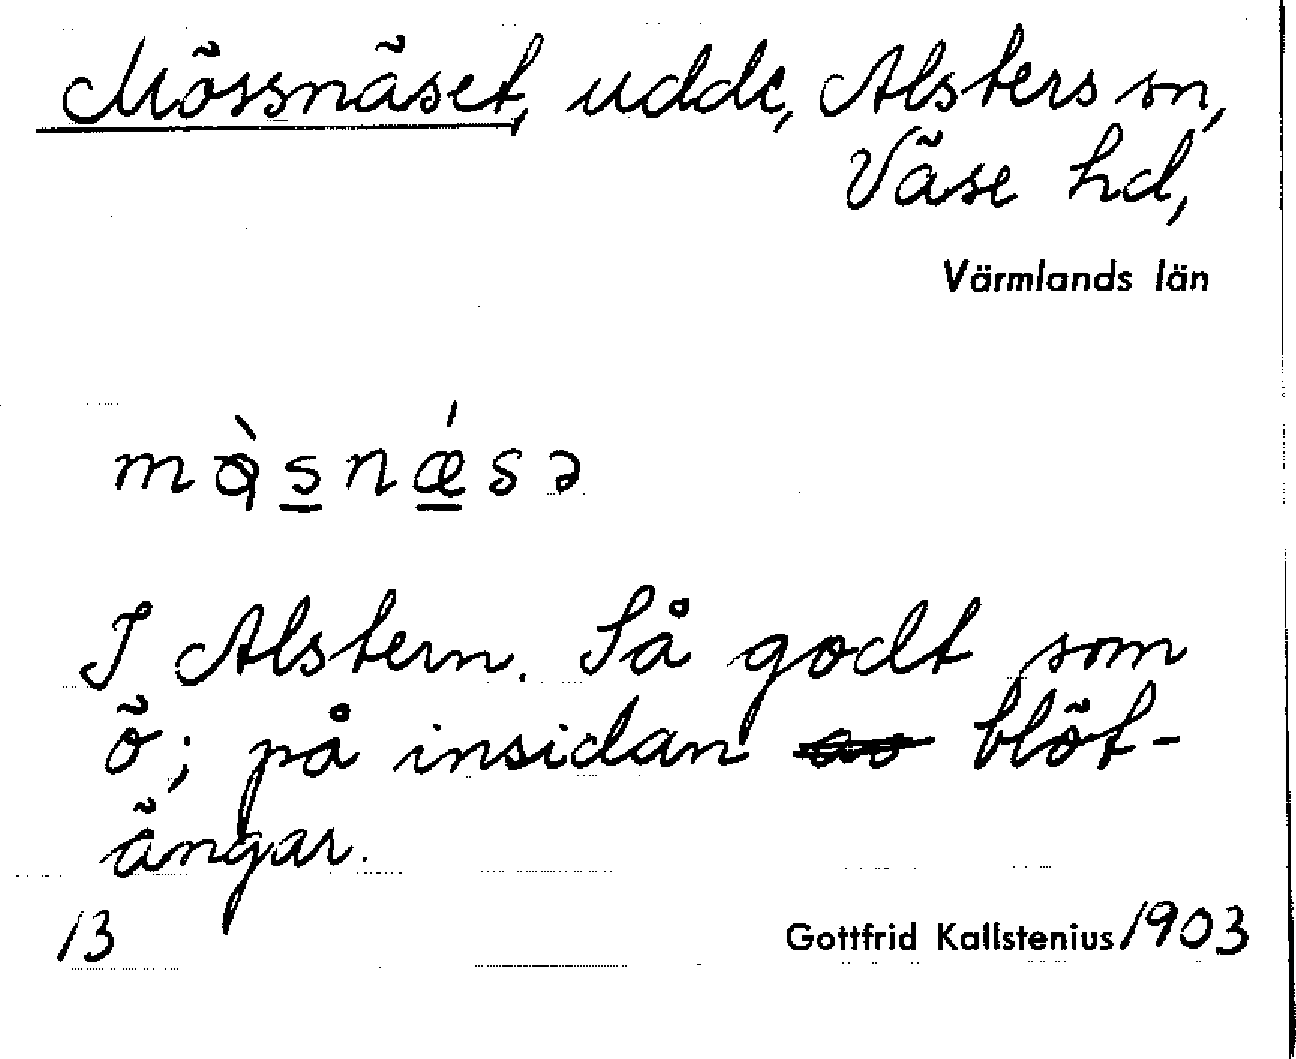 Mössnäset, udde, Alsters sn,
Väse hd,
Värmlands län
mǫ̀s̲nǽ̲sə
I Alstern. Så godt som
ö; på insidan av blöt-
ängar.
13
Gottfrid Kallstenius 1903